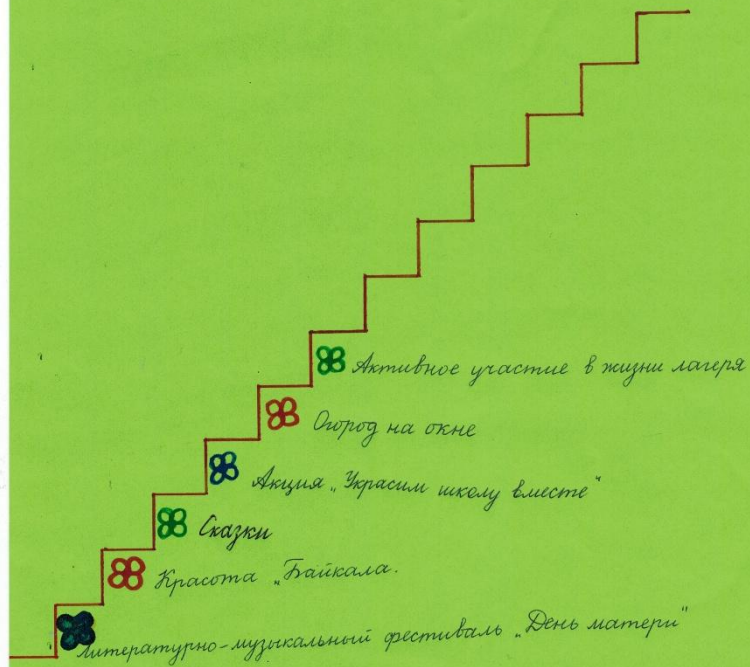 Активное участие в жизни лагеря
Огород на окне
Акция „Украсим школу вместе"
Сказки
Красота „Байкала.
Литературно-музыкальный фестиваль „День матери"